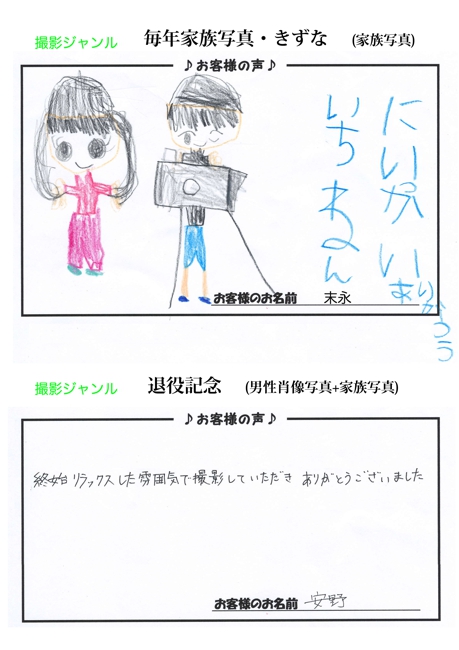 撮影ジャンル 毎年家族写真・きずな (家族写真)
♪お客様の声♪
にいがい
ありがとう
いちねん
お客様のお名前 末永
撮影ジャンル 退役記念 (男性肖像写真+家族写真)
♪お客様の声♪
終始リラックスした雰囲気で撮影していただき ありがとうございました
お客様のお名前 安野